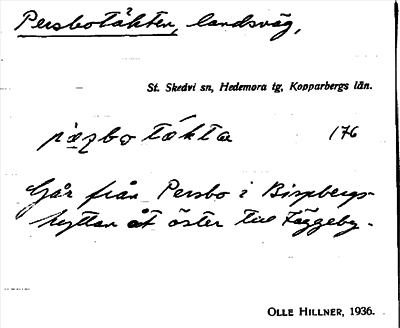 Persbotäkten, landsväg,
St. Skedvi sn, Hedemora tg, Kopparbergs län.
pæʂbo tákta 176
Går från Persbo i Bispbergs-
hyttan åt öster till Fäggeby.
OLLE HILLNER, 1936.